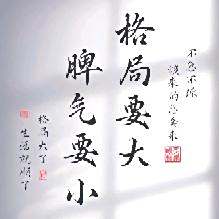 格局要大
脾气要小
不急不燥
该来的总会来
格局大了
生活就顺了